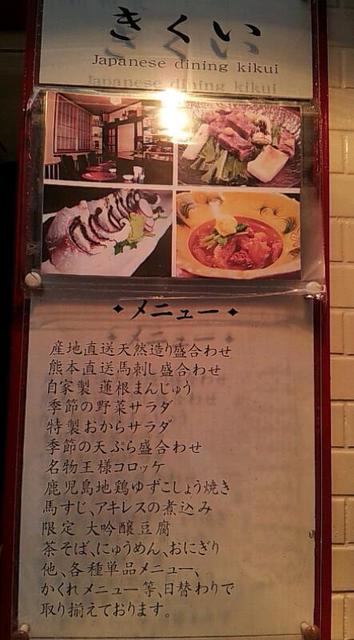 きくい
Japanese dining kikui
メニュー
産地直送天然造り盛合わせ
熊本直送馬刺し盛合わせ
自家製 蓮根まんじゅう
季節の野菜サラダ
特製おからサラダ
季節の天ぷら盛合わせ
名物王様コロッケ
鹿児島地鶏ゆずこしょう焼き
馬すじ、アキレスの煮込み
限定 大吟醸豆腐
茶そば、にゅうめん、おにぎり
他、各種単品メニュー、
かくれメニュー等、日替わりで
取り揃えております。